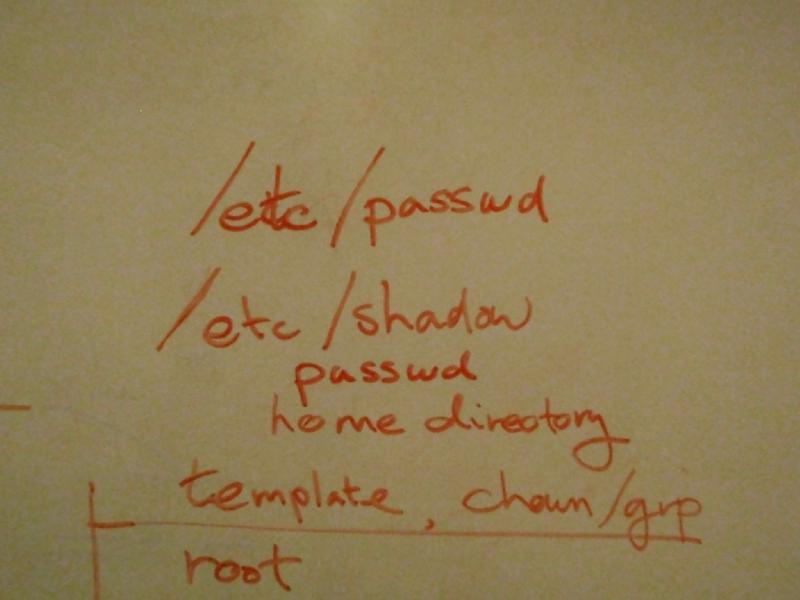 /etc/passwd
/etc/shadow
passwd
home directory
template, chown/grp
root